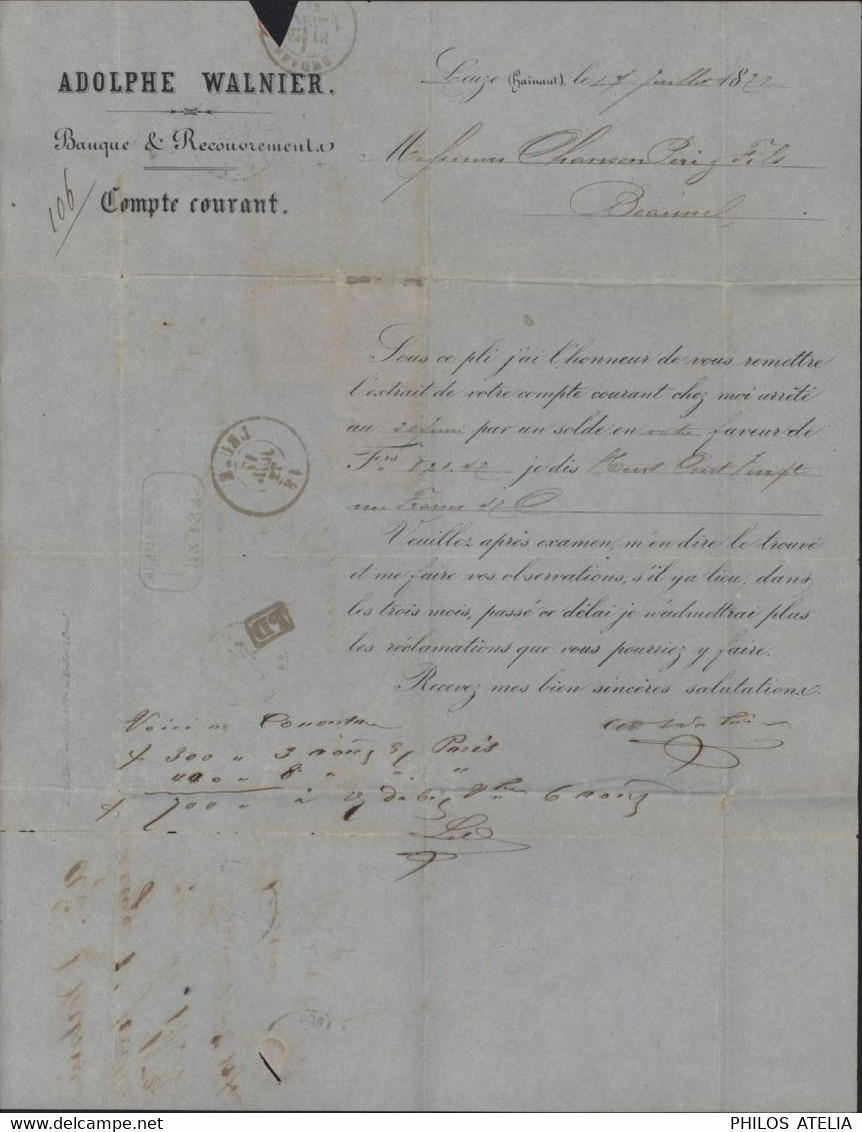 ADOLPHE WALNIER.
Banque & Recouvrements
Compte courant.
106
Leuze (Hainaut), le 17 Juillet 1872
Messieurs Chanson Père & Fils
Beaune
Sous ce pli j'ai l'honneur de vous remettre
l'extrait de votre compte courant chez moi arrêté
au Juin par un solde en votre faveur de
Frs 821.42 je dis Huit Cent Vingt
un Francs 42 C
Veuillez après examen, m'en dire le trouvé
et me faire vos observations, s'il y a lieu, dans
les trois mois, passé ce délai je n'admettrai plus
les réclamations que vous pourriez y faire.
Recevez mes bien sincères salutations.
LEUZE
PD
Voici
300 " 3 août Paris
400 " 8 " " "
700 " à 6 août
PHILOS ATELIA